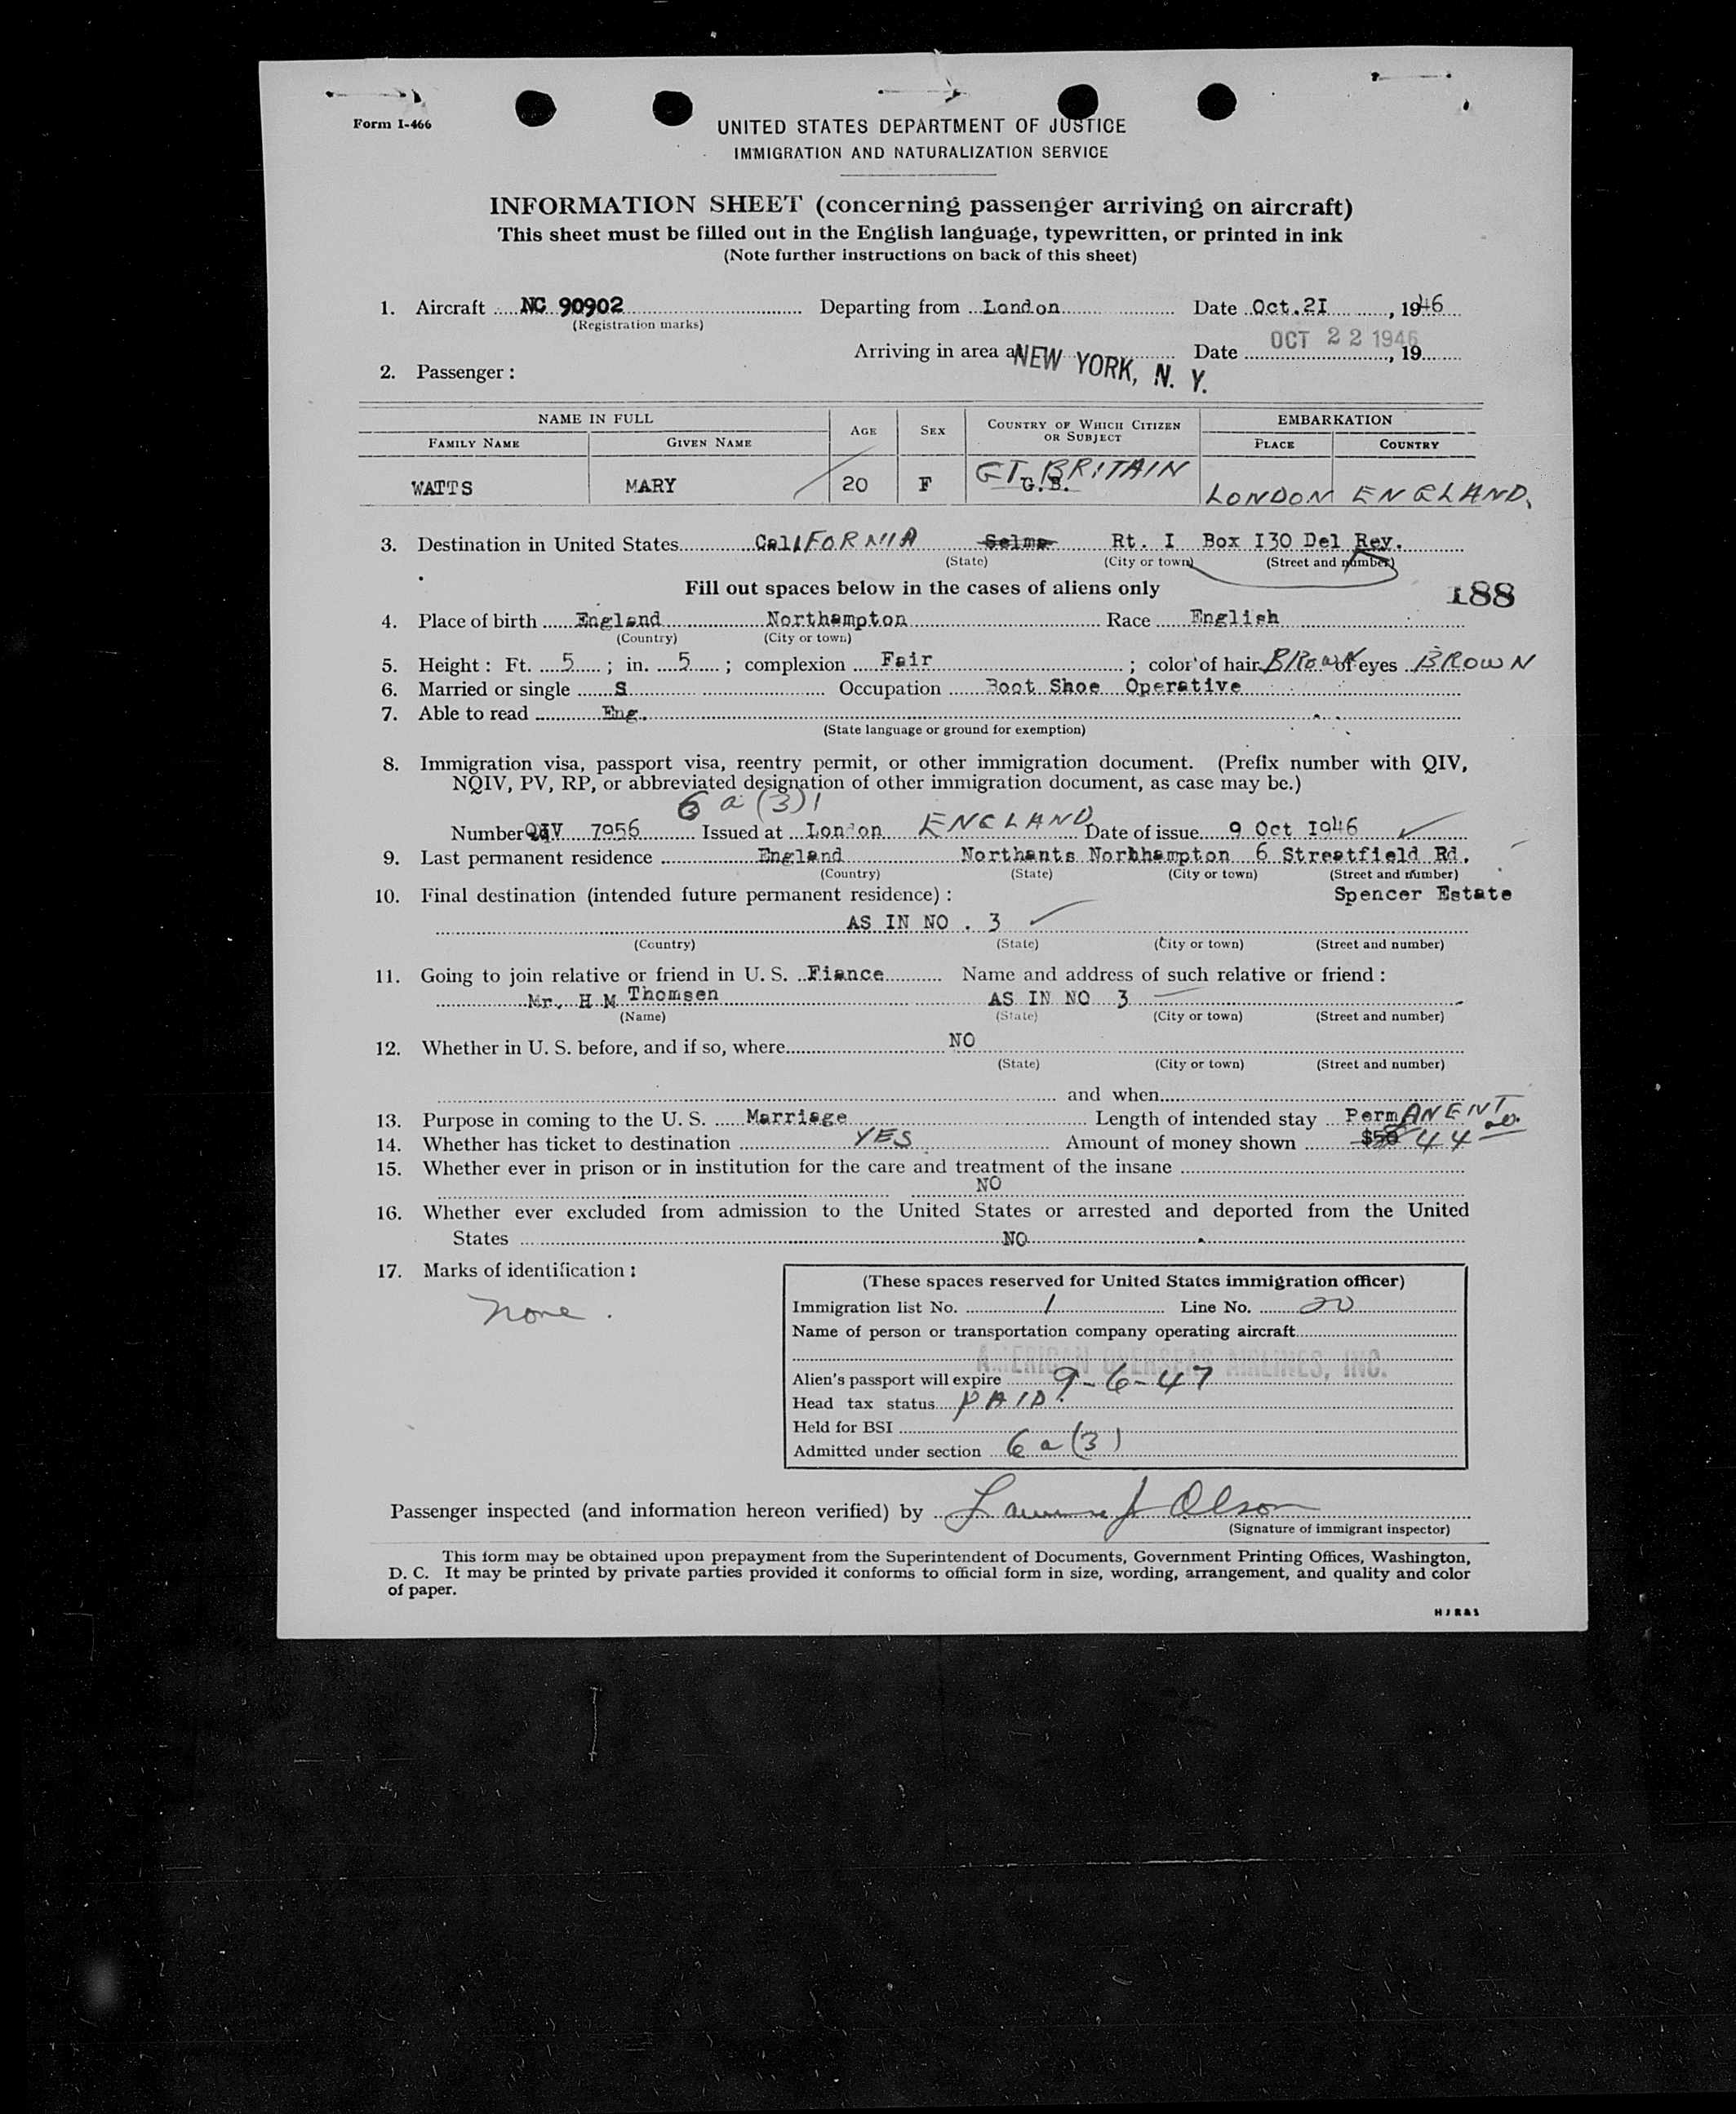 Form I-466
UNITED STATES DEPARTMENT OF JUSTICE
IMMIGRATION AND NATURALIZATION SERVICE
INFORMATION SHEET (concerning passenger arriving on aircraft)
This sheet must be filled out in the English language, typewritten, or printed in ink
(Note further instructions on back of this sheet)
1. Aircraft NC 90902 Departing from London Date Oct.2I, 1946
(Registration marks)
Arriving in area a NEW YORK, N. Y. Date OCT 22 1946, 19
2. Passenger:
NAME IN FULL AGE SEX COUNTRY OF WHICH CITIZEN OR SUBJECT EMBARKATION
FAMILY NAME GIVEN NAME PLACE COUNTRY
WATTS MARY 20 F GT. BRITAIN G.B. LONDON ENGLAND.
3. Destination in United States CalIFORNIA Selma Rt. I Box I30 Del Rey.
(State) (City or town) (Street and number)
Fill out spaces below in the cases of aliens only
188
4. Place of birth England Northampton Race English
(Country) (City or town)
5. Height: Ft. 5; in. 5; complexion Fair; color of hair BROWN of eyes BROWN
6. Married or single S Occupation Boot Shoe Operative
7. Able to read Eng.
(State language or ground for exemption)
8. Immigration visa, passport visa, reentry permit, or other immigration document. (Prefix number with QIV,
NQIV, PV, RP, or abbreviated designation of other immigration document, as case may be.)
6 a (3)
Number QIV 7956 Issued at London ENGLAND Date of issue 9 Oct I946
9. Last permanent residence England Northants Northampton 6 Streatfield Rd.
(Country) (State) (City or town) (Street and number)
10. Final destination (intended future permanent residence): Spencer Estate
AS IN NO . 3
(Country) (State) (City or town) (Street and number)
11. Going to join relative or friend in U. S. Fiance Name and address of such relative or friend:
Mr. H M Thomsen AS IN NO 3
(Name) (State) (City or town) (Street and number)
12. Whether in U. S. before, and if so, where NO
(State) (City or town) (Street and number)
and when
13. Purpose in coming to the U. S. Marriage Length of intended stay PermANENT
14. Whether has ticket to destination YES Amount of money shown $50 44 00
15. Whether ever in prison or in institution for the care and treatment of the insane
NO
16. Whether ever excluded from admission to the United States or arrested and deported from the United
States NO
17. Marks of identification:
None.
(These spaces reserved for United States immigration officer)
Immigration list No. 1 Line No. 20
Name of person or transportation company operating aircraft
AMERICAN OVERSEAS AIRLINES, INC.
Alien's passport will expire 9-6-47
Head tax status PAID.
Held for BSI
Admitted under section 6 a (3)
Passenger inspected (and information hereon verified) by Lawrence J Olson
(Signature of immigrant inspector)
This form may be obtained upon prepayment from the Superintendent of Documents, Government Printing Offices, Washington,
D. C. It may be printed by private parties provided it conforms to official form in size, wording, arrangement, and quality and color
of paper.